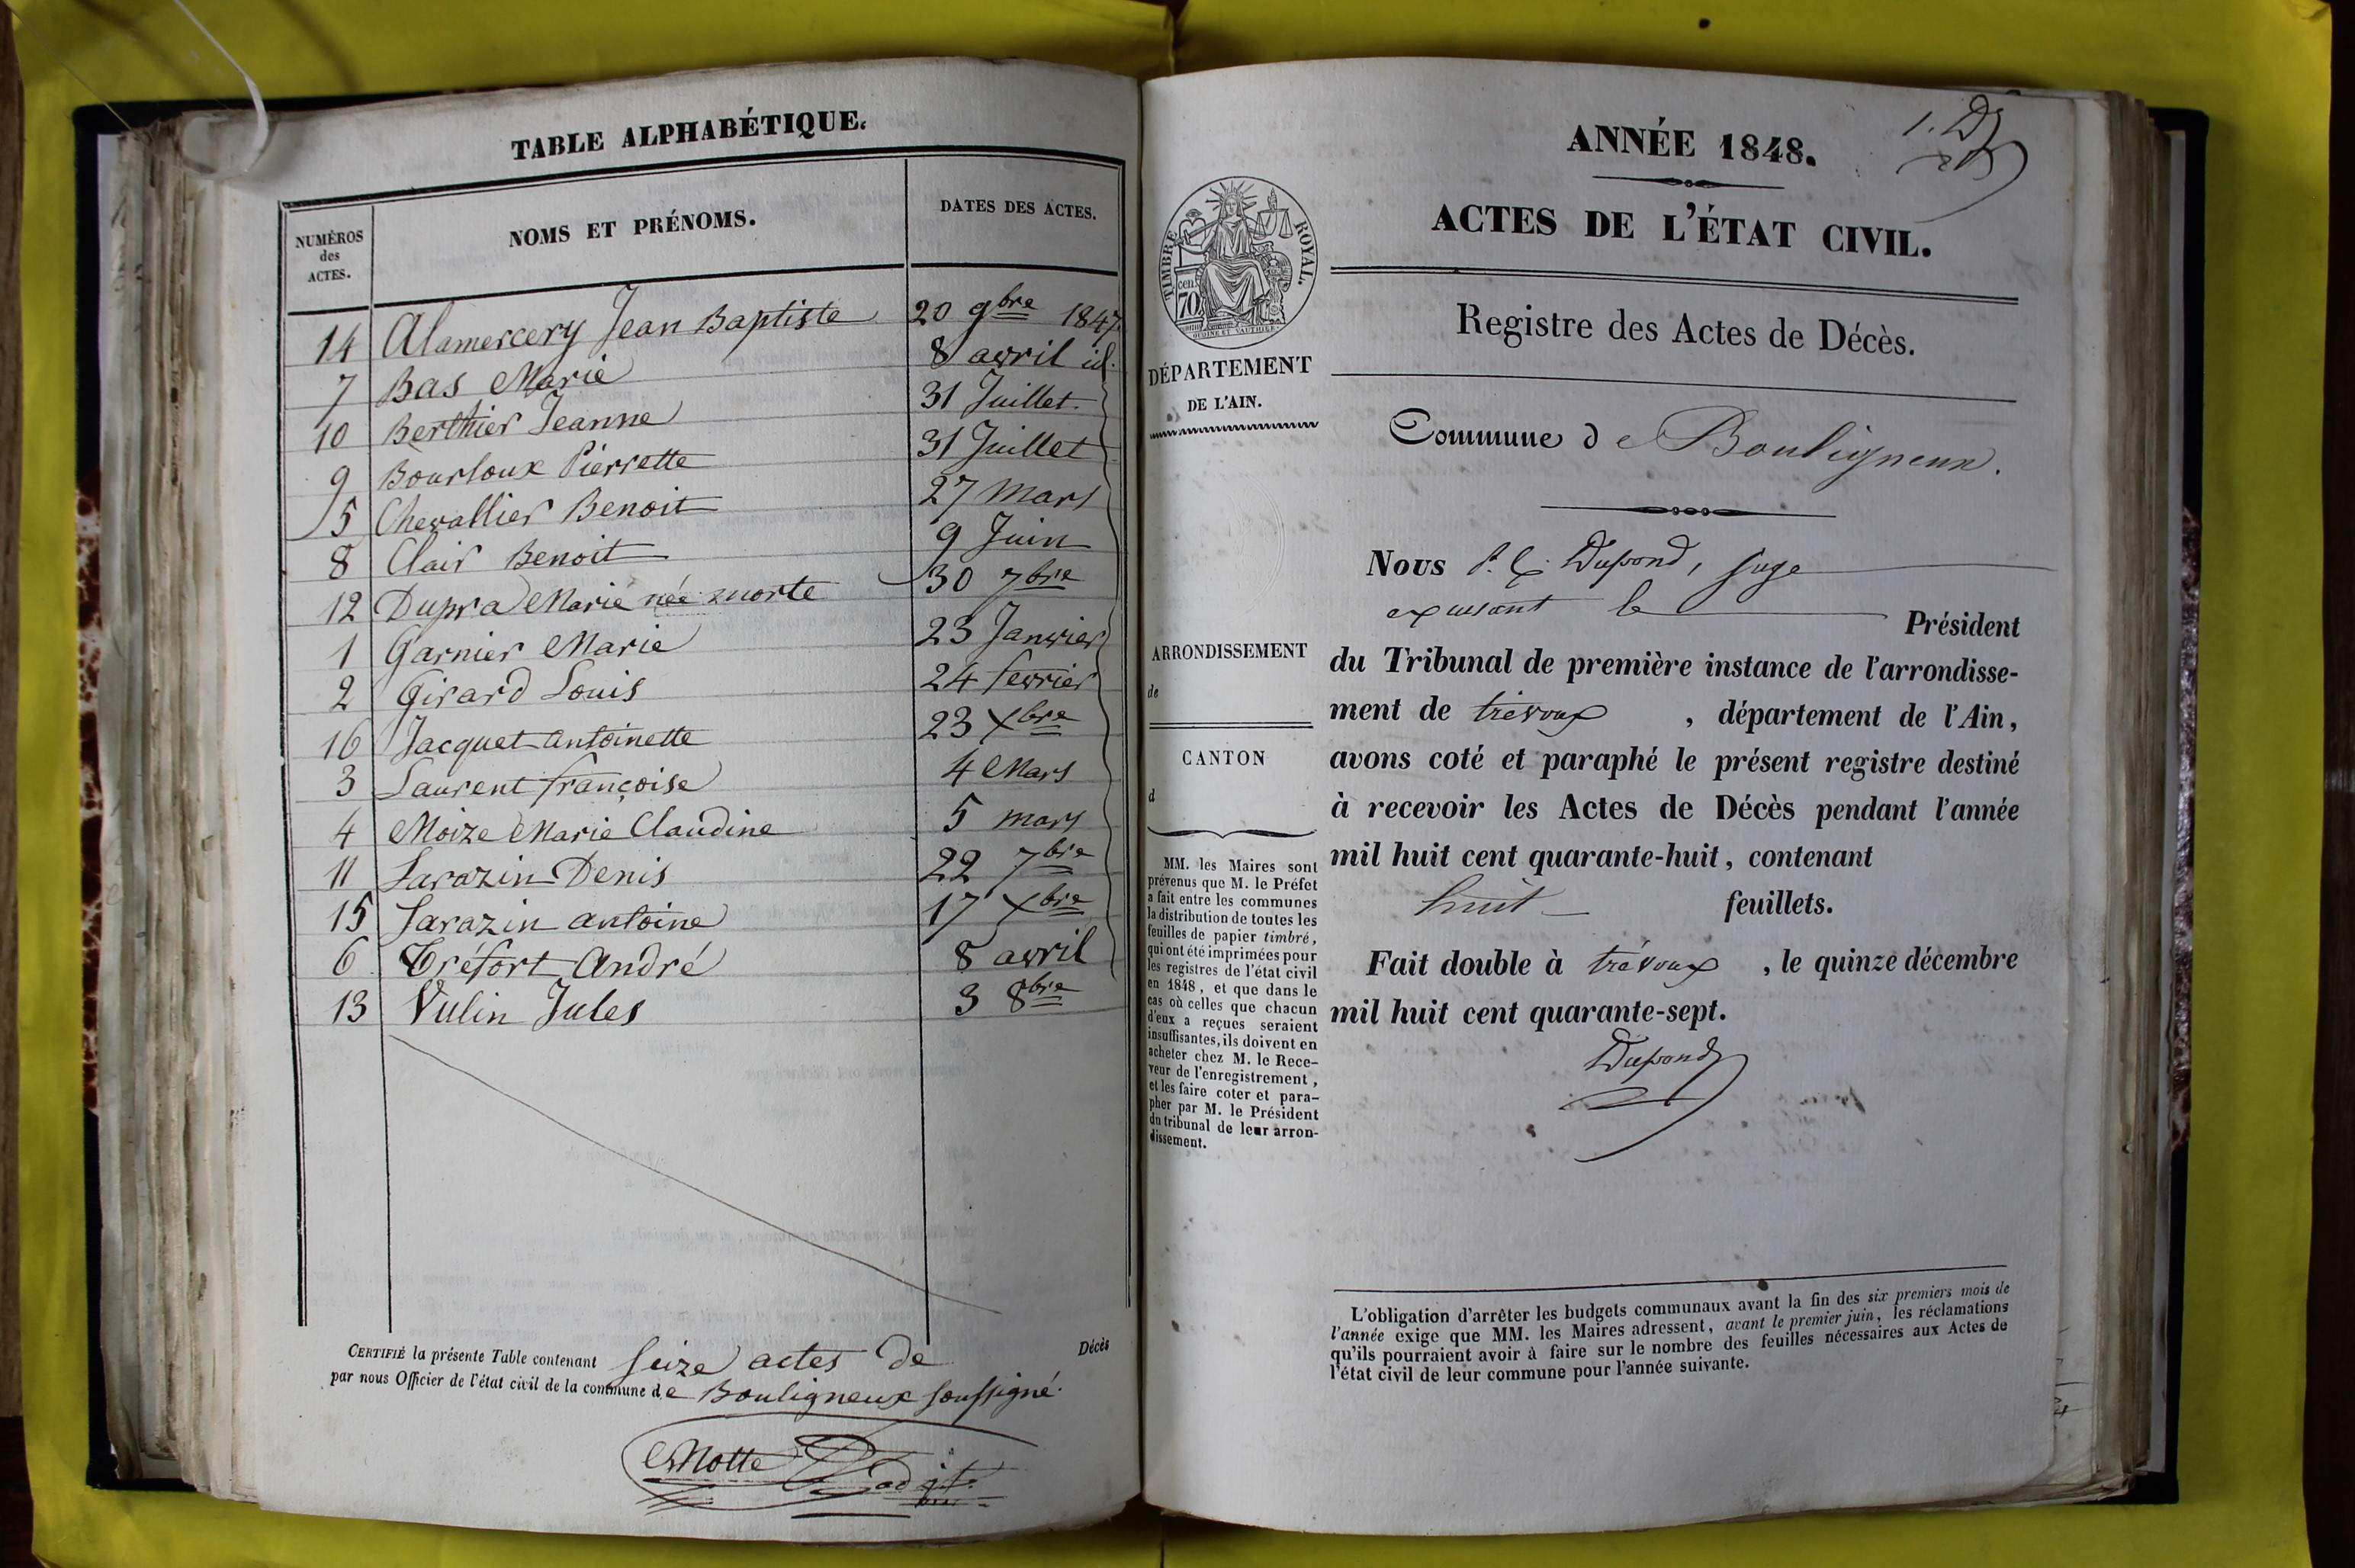 TABLE ALPHABÉTIQUE.
NUMÉROS
des
ACTES.
NOMS ET PRÉNOMS.
DATES DES ACTES.
14 Alamercery Jean Baptiste 20 9bre 1847.
7 Bas Marie 8 avril id.
10 Berthier Jeanne 31 Juillet
9 Bourloux Pierrette 31 Juillet
5 Chevallier Benoit 27 Mars
8 Clair Benoit 9 Juin
12 Dupra Marie née morte 30 7bre
1 Garnier Marie 23 Janvier
2 Girard Louis 24 fevrier
16 Jacquet antoinette 23 Xbre
3 Laurent françoise 4 Mars
4 Moize Marie Claudine 5 mars
11 Sarazin Denis 22 7bre
15 Sarazin antoine 17 Xbre
6 Tréfort André 8 avril
13 Vulin Jules 3 8bre
CERTIFIÉ la présente Table contenant seize actes de Décès
par nous Officier de l'état civil de la commune de Bouligneux soussigné.
Motte adjt.
1. D
ANNÉE 1848.
ACTES DE L'ÉTAT CIVIL.
TIMBRE ROYAL.
70 cen.
DÉPARTEMENT
DE L'AIN.
ARRONDISSEMENT
de
CANTON
d
MM. les Maires sont
prévenus que M. le Préfet
a fait entre les communes
la distribution de toutes les
feuilles de papier timbré,
qui ont été imprimées pour
les registres de l'état civil
en 1848, et que dans le
cas où celles que chacun
d'eux a reçues seraient
insuffisantes, ils doivent en
acheter chez M. le Rece-
veur de l'enregistrement,
et les faire coter et para-
pher par M. le Président
du tribunal de leur arron-
dissement.
Registre des Actes de Décès.
Commune de Bouligneux.
Nous Dupond, juge
exerçant le Président
du Tribunal de première instance de l'arrondisse-
ment de trévoux, département de l'Ain,
avons coté et paraphé le présent registre destiné
à recevoir les Actes de Décès pendant l'année
mil huit cent quarante-huit, contenant
huit feuillets.
Fait double à trévoux, le quinze décembre
mil huit cent quarante-sept.
Dupond
L'obligation d'arrêter les budgets communaux avant la fin des six premiers mois de
l'année exige que MM. les Maires adressent, avant le premier juin, les réclamations
qu'ils pourraient avoir à faire sur le nombre des feuilles nécessaires aux Actes de
l'état civil de leur commune pour l'année suivante.